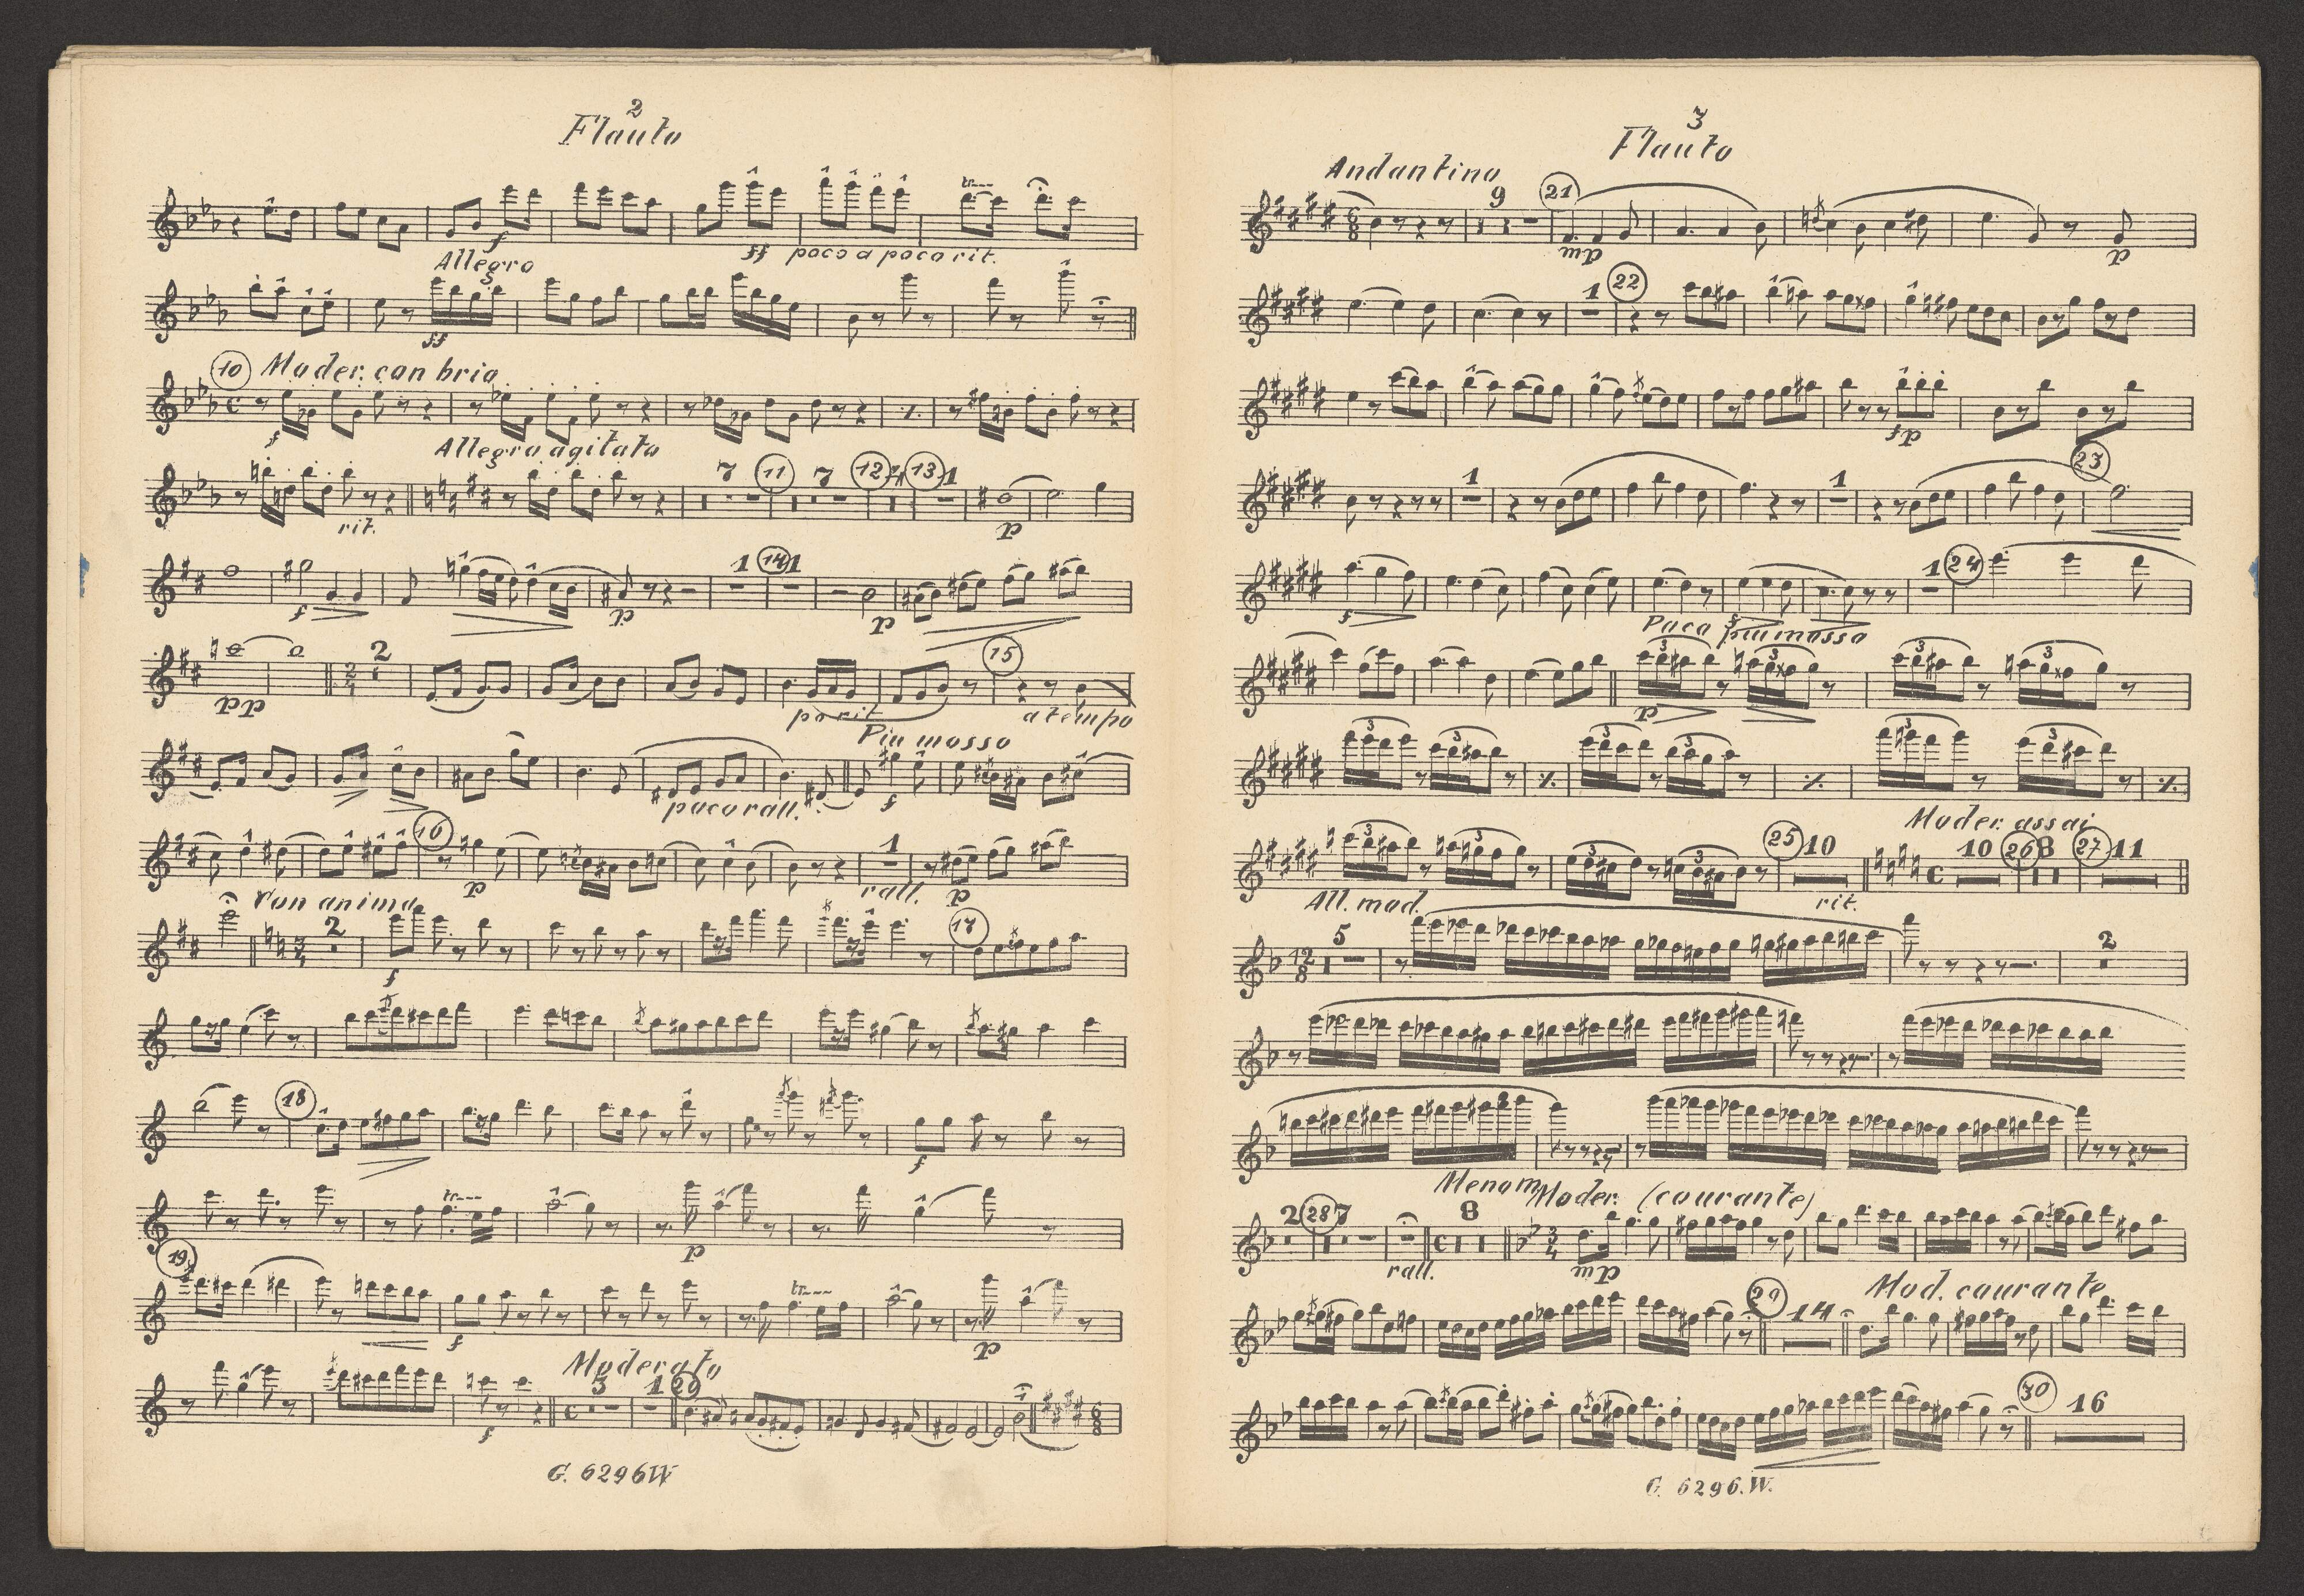 2
Flauto
f
ff poco a poco rit.
Allegro
ff
10 Moder. con brio
f
Allegro agitato
7 11 7 12 13 1
rit.
p
1 14 1
f
p
p
2
15
pp
po rit
a tempo
Piu mosso
f
poco rall.
16
1
p
rall.
p
Con anima
3
4
2
17
f
18
f
tr
p
19
tr
f
p
Moderato
3 1 20
f
6
8
G. 6296 W
3
Flauto
Andantino
6
8
9 21
mp
p
1 22
fp
1
1
23
1 24
f
Poco piu mosso
3 3 3 3
p
3 3 3 3 3 3
Moder. assai
3 3 3 3
25 10
10 26 8 27 11
rit.
All. mod.
12
8
5
2
Menom Moder. (courante)
2 28 7
8
3
4
rall.
mp
Mod. courante
29 14
30 16
G. 6296. W.